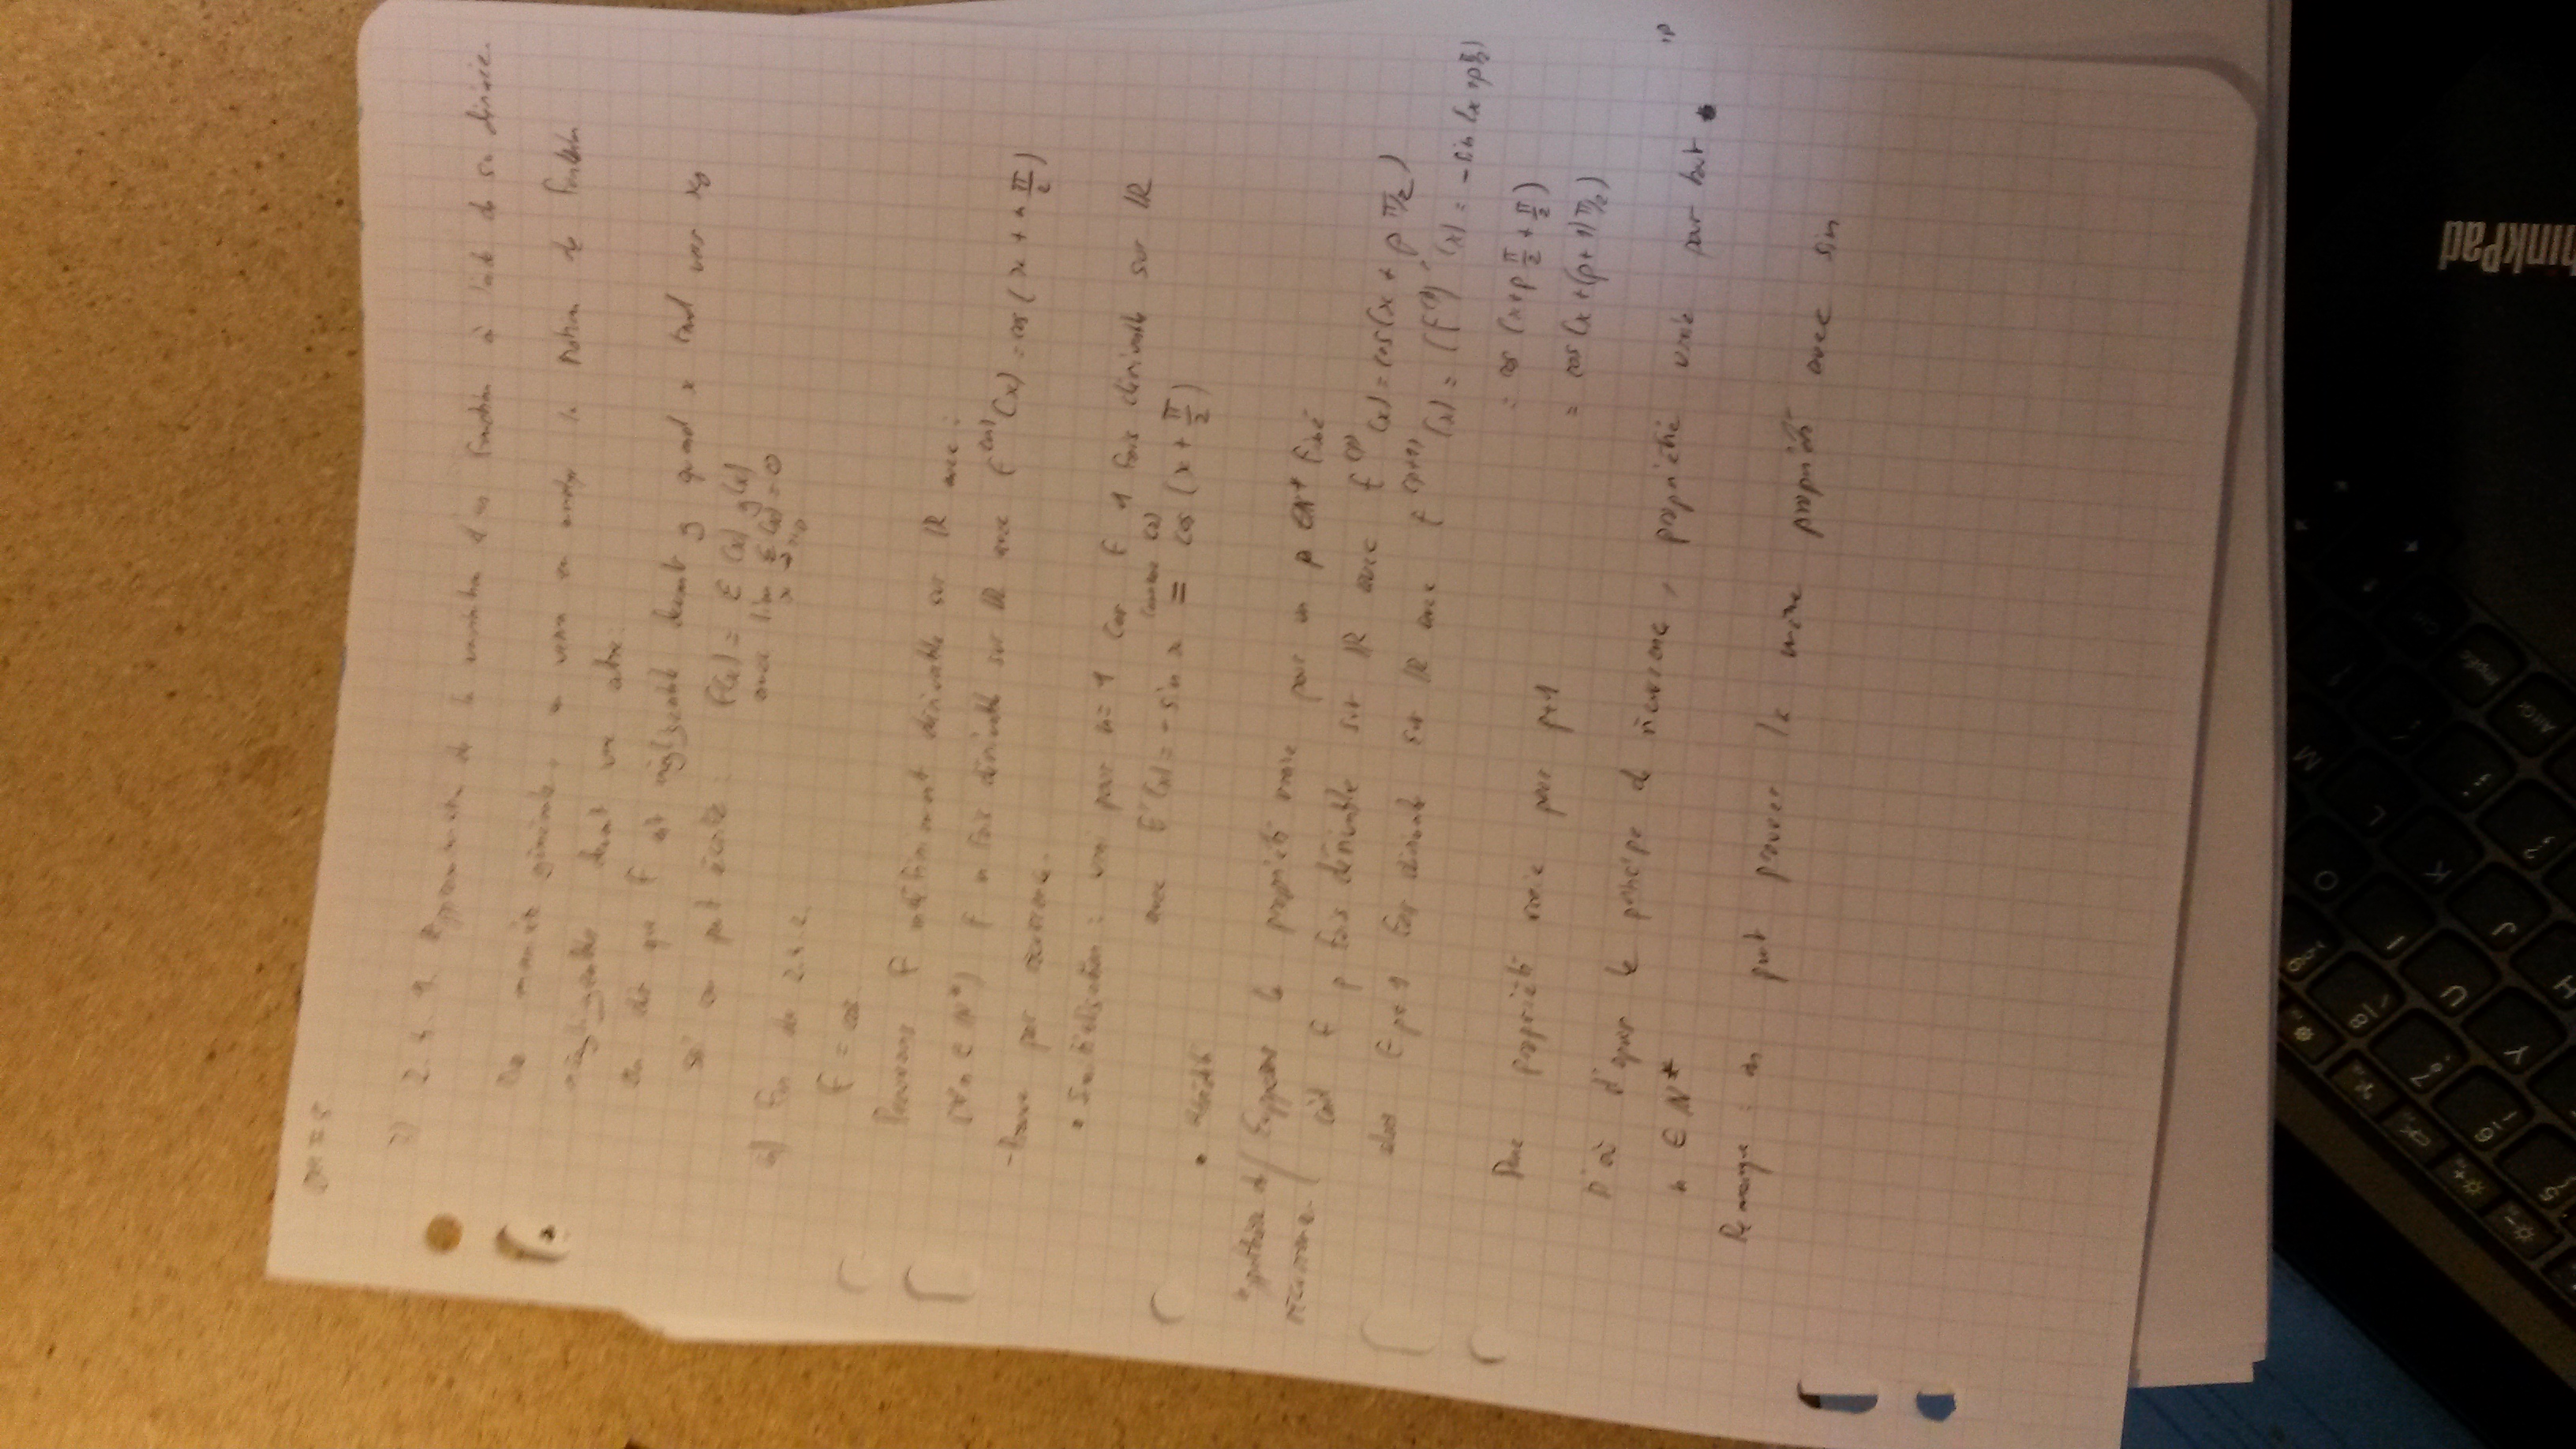 2.4.1. Approximation de la variation d'une fonction à l'aide de sa dérivée.
De manière générale, on verra en analyse la notion de fonction
négligeable devant une autre.
On dit que f est négligeable devant g quand x tend vers x0
si on peut écrire : f(x) = ε(x) g(x)
avec lim ε(x) = 0
x→x0
Fin de 2.4.2.
f = cos
Prouvons f indéfiniment dérivable sur ℝ avec :
(∀n ∈ N*) f n fois dérivable sur ℝ avec f^(n)(x) = cos(x + n π/2)
- Preuve par récurrence.
• Initialisation : vrai pour n = 1 car f 1 fois dérivable sur ℝ
avec f'(x) = - sin x = cos(x + π/2)
• Hérédité
Hypothèse de récurrence ( Supposons la propriété vraie pour un p ∈ N* fixé
soit f p fois dérivable sur ℝ avec f^(p)(x) = cos(x + p π/2)
alors f p+1 fois dérivable sur ℝ avec f^(p+1)(x) = (f^(p))'(x) = - sin(x + p π/2)
= cos(x + p π/2 + π/2)
= cos(x + (p+1) π/2)
Donc propriété vraie pour p+1
D'où d'après le principe de récurrence, propriété vraie pour tout
n ∈ N*
Remarque : on peut prouver la même propriété avec sin
ThinkPad